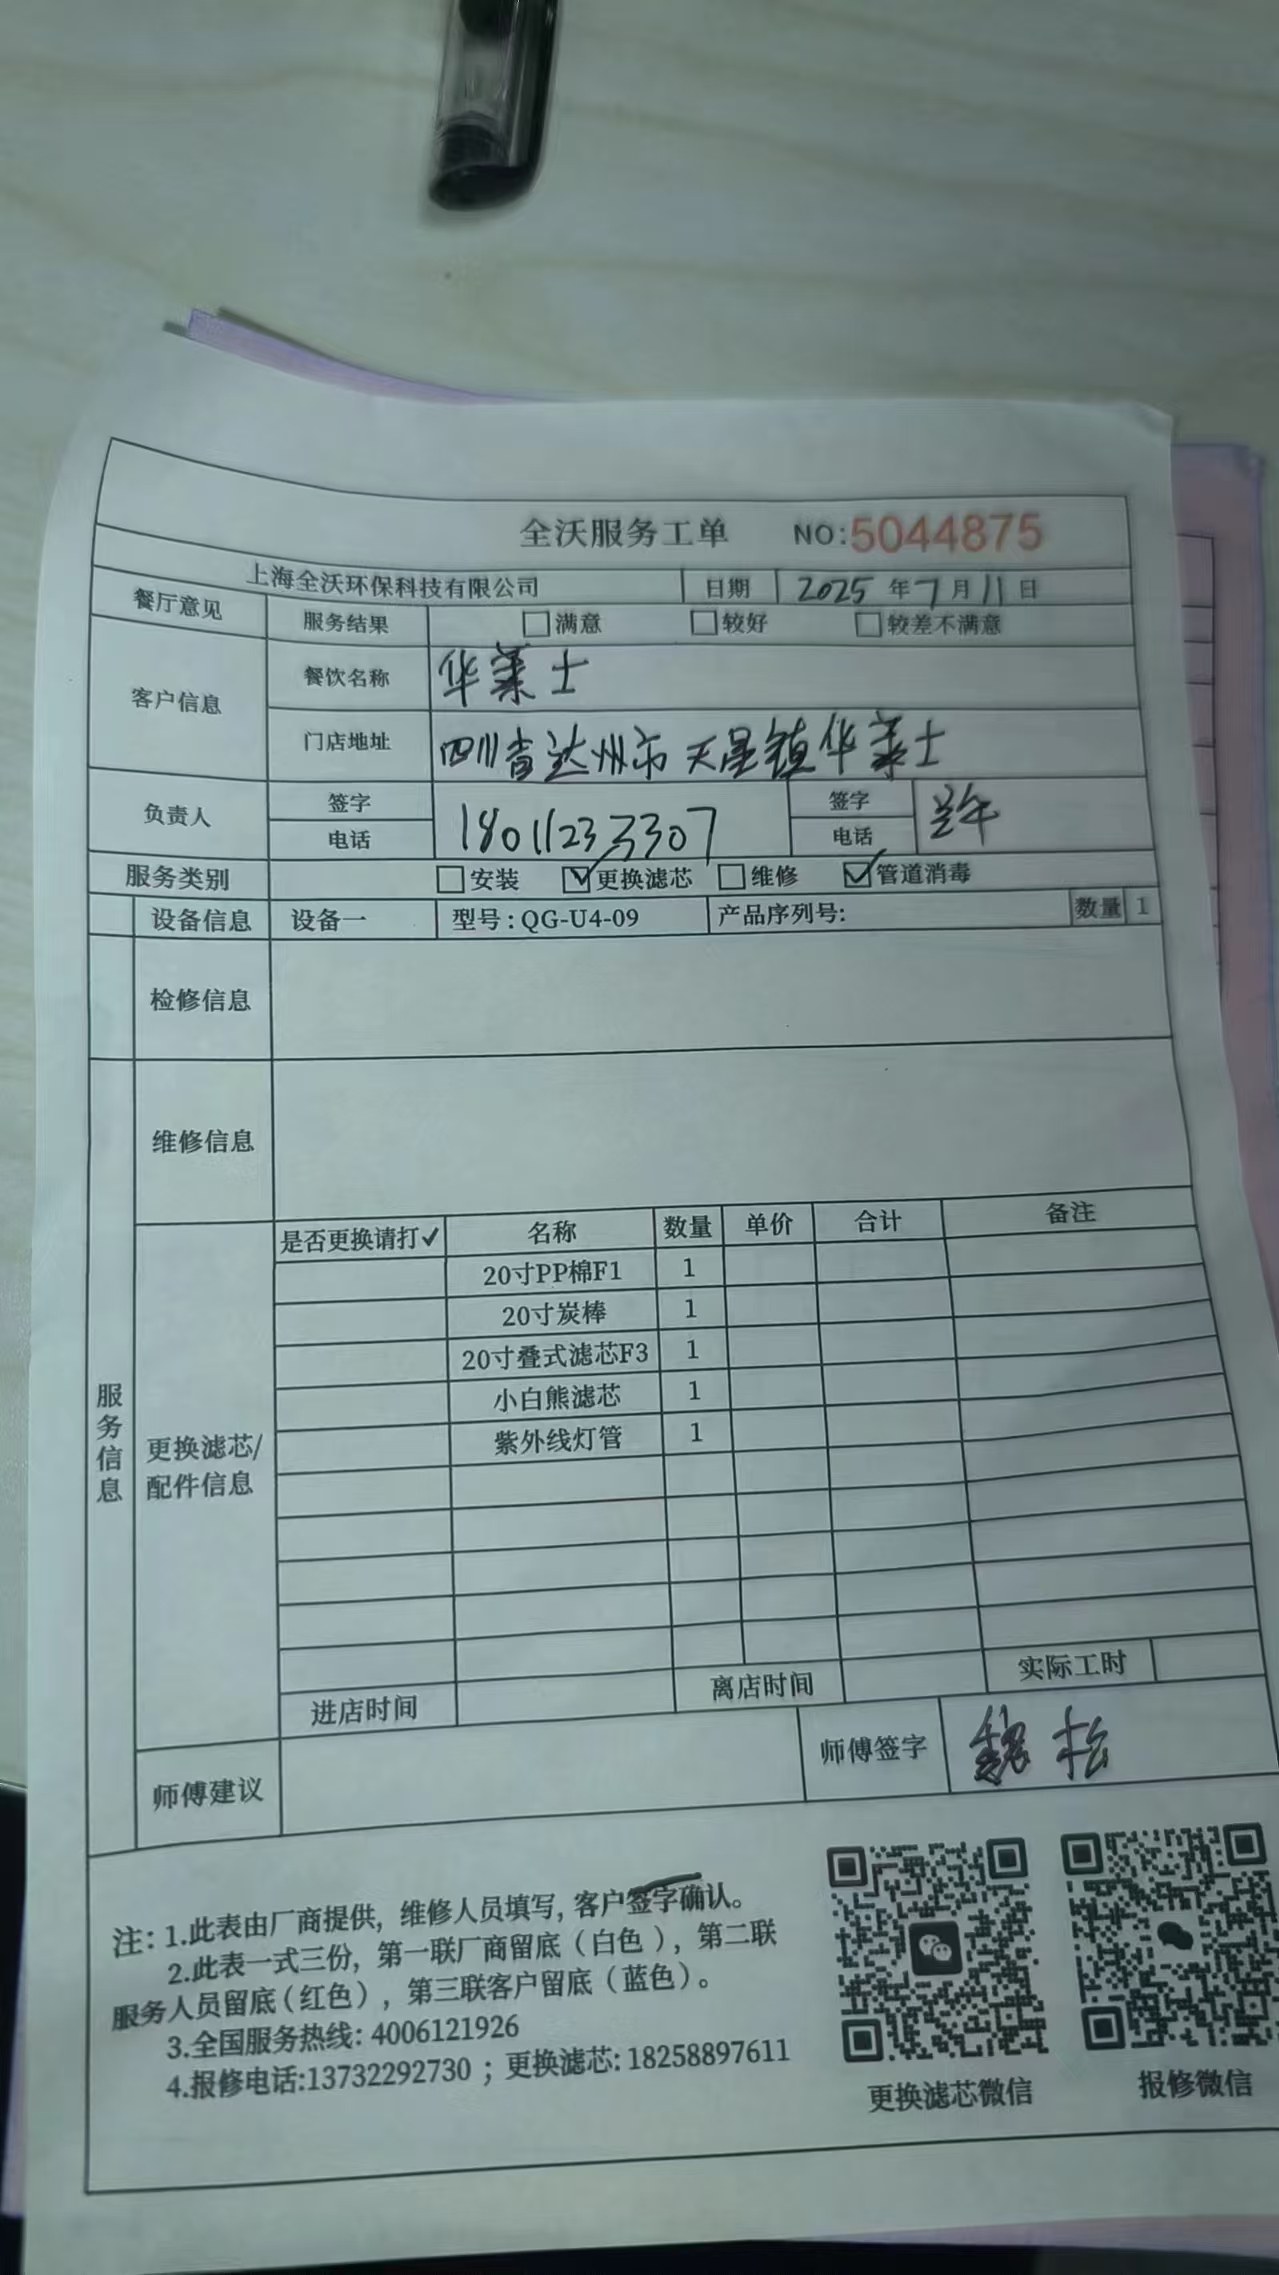 全沃服务工单 NO:5044875
上海全沃环保科技有限公司 日期 2025 年 7 月 11 日
餐厅意见 服务结果 满意 较好 较差不满意
客户信息 餐饮名称 华莱士
门店地址 四川省达州市天星镇华莱士
负责人 签字 电话 18011233307 签字 电话
服务类别 安装 更换滤芯 维修 管道消毒
设备信息 设备一 型号:QG-U4-09 产品序列号: 数量 1
检修信息
维修信息
服务信息
更换滤芯/配件信息
是否更换请打✓ 名称 数量 单价 合计 备注
20寸PP棉F1 1
20寸炭棒 1
20寸叠式滤芯F3 1
小白熊滤芯 1
紫外线灯管 1
进店时间 离店时间 实际工时
师傅建议 师傅签字 魏松
注: 1.此表由厂商提供, 维修人员填写, 客户签字确认。
2.此表一式三份, 第一联厂商留底(白色), 第二联
服务人员留底(红色), 第三联客户留底(蓝色)。
3.全国服务热线: 4006121926
4.报修电话:13732292730 ; 更换滤芯: 18258897611
更换滤芯微信 报修微信